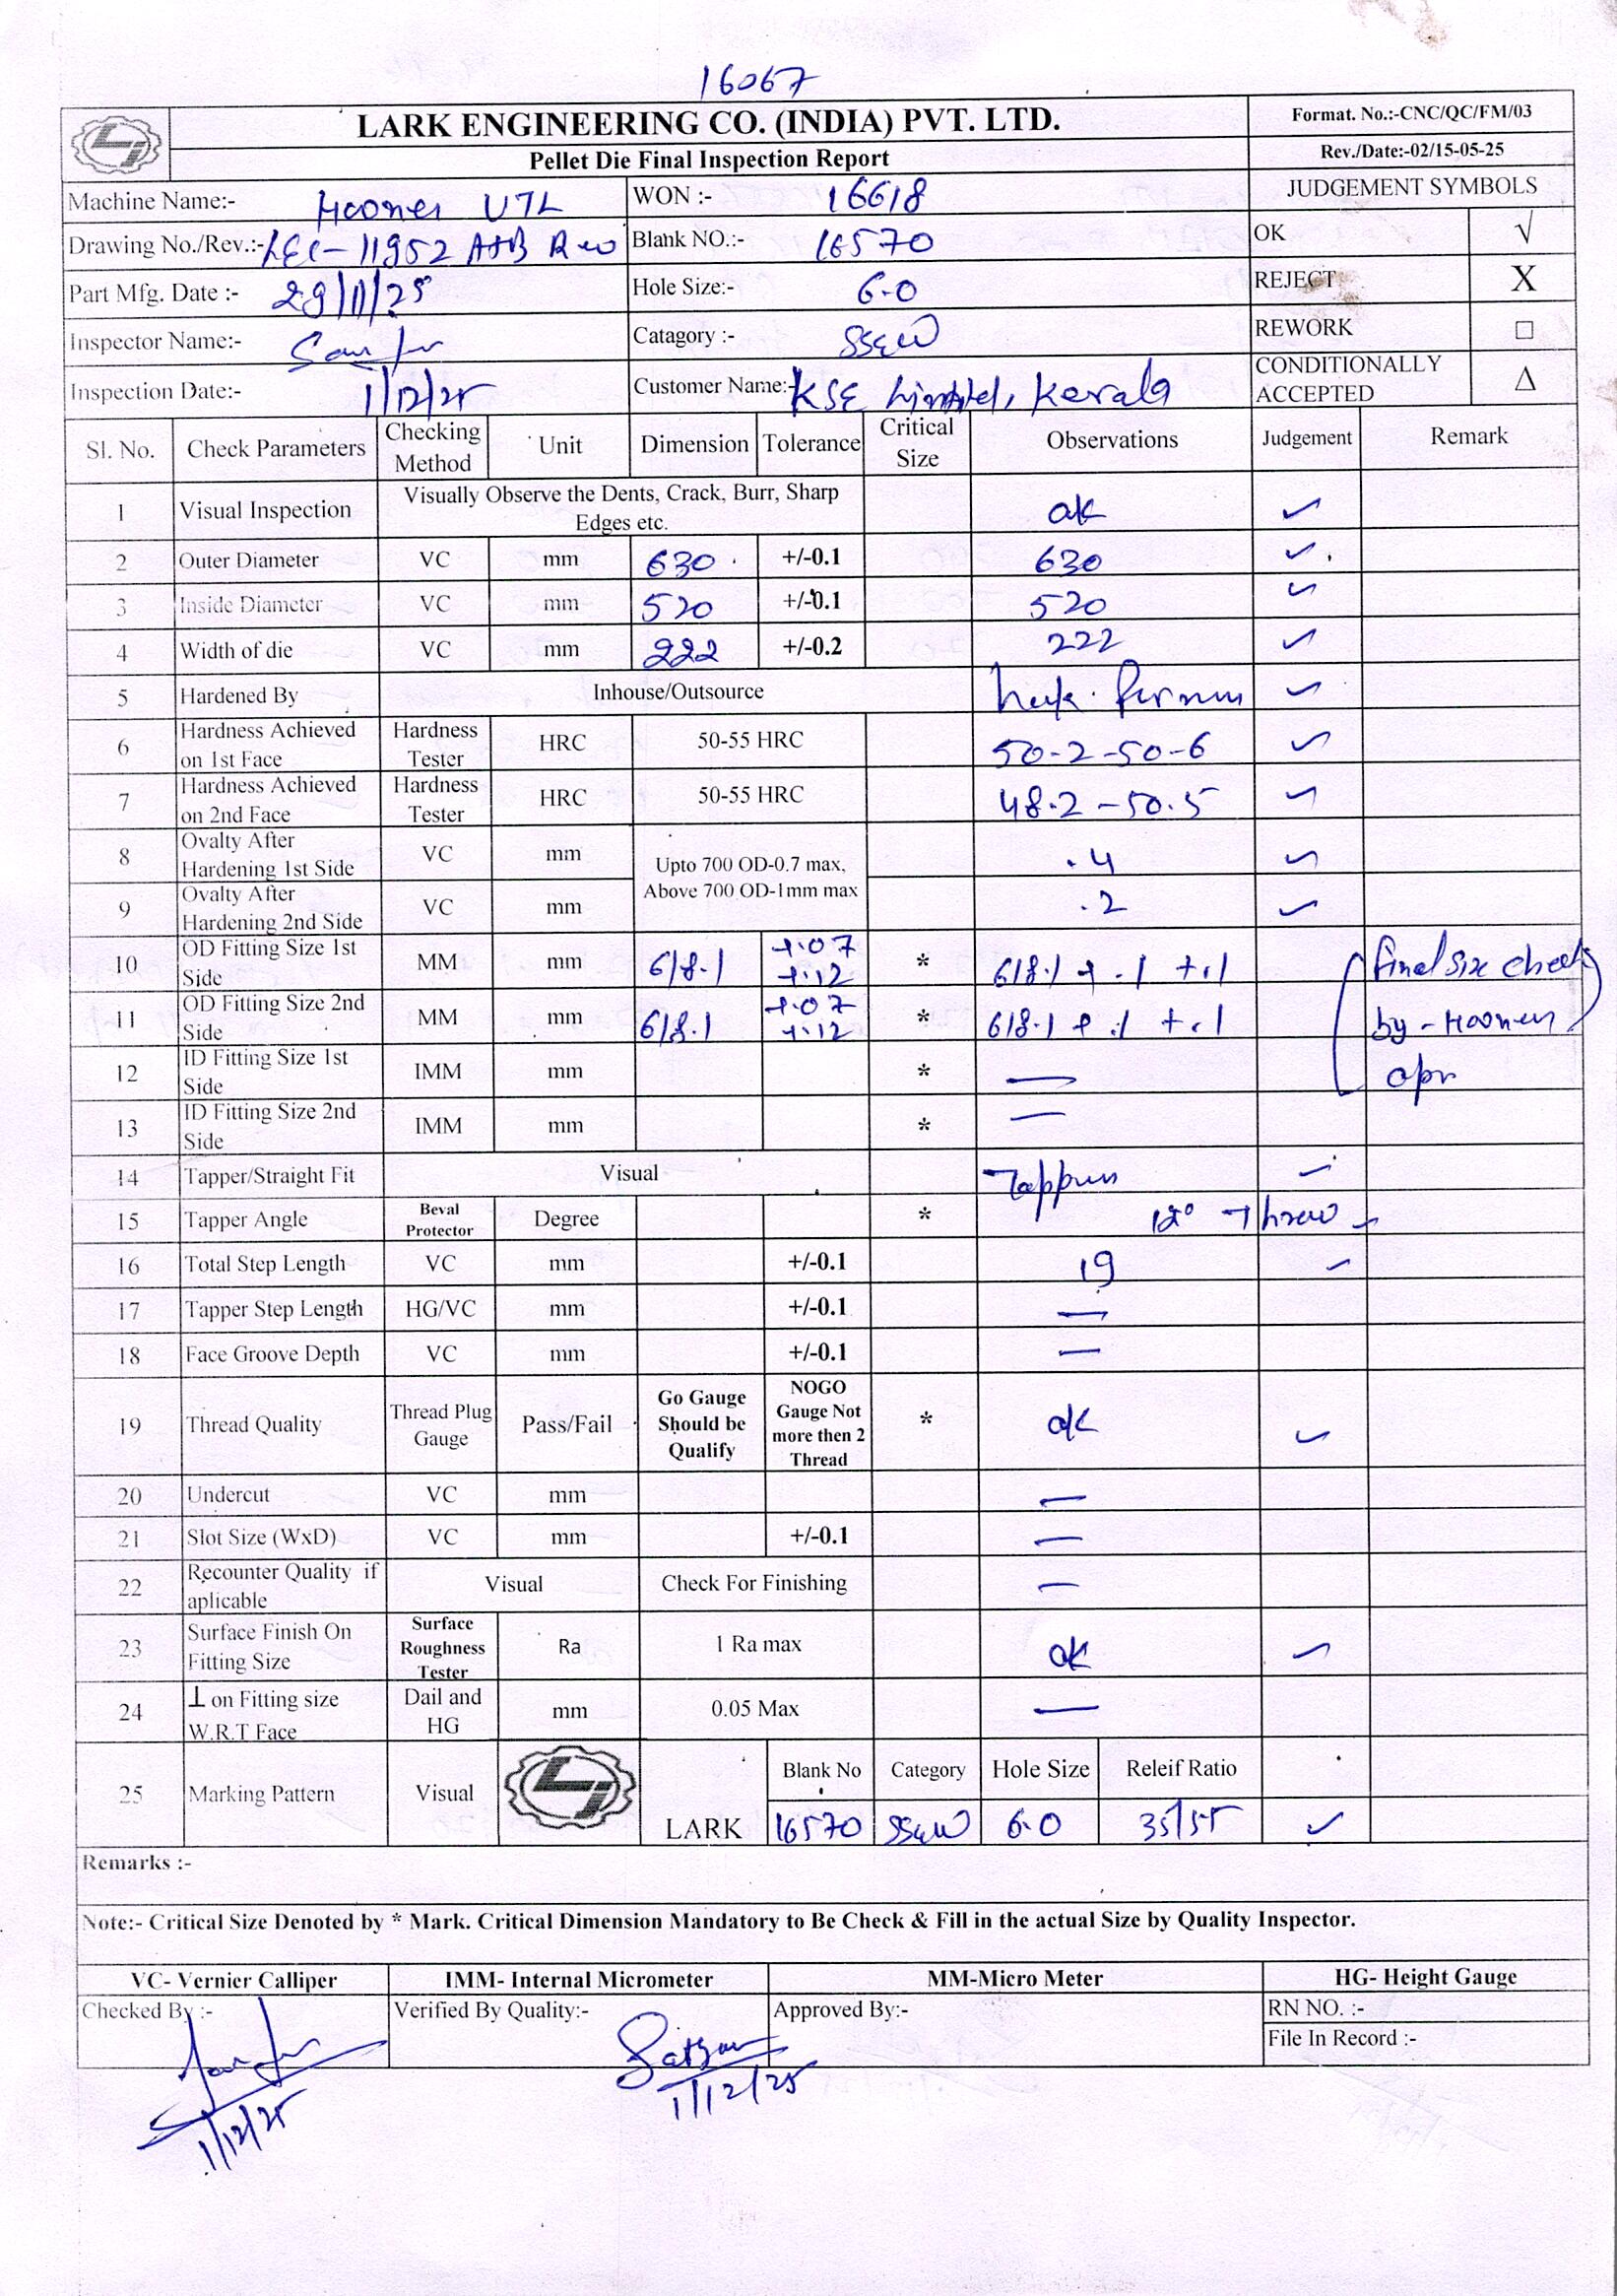 16067
LARK ENGINEERING CO. (INDIA) PVT. LTD.
Format. No.:-CNC/QC/FM/03
Pellet Die Final Inspection Report
Rev./Date:-02/15-05-25
Machine Name:- UTL WON :- 16618 JUDGEMENT SYMBOLS
Drawing No./Rev.:- LEC-11952 Blank NO.:- 16570 OK √
Part Mfg. Date :- 29/11/25 Hole Size:- 6.0 REJECT X
Inspector Name:- Catagory :- REWORK □
Inspection Date:- 1/12/25 Customer Name:- KSE Limited, Kerala CONDITIONALLY ACCEPTED Δ
Sl. No. Check Parameters Checking Method Unit Dimension Tolerance Critical Size Observations Judgement Remark
1 Visual Inspection Visually Observe the Dents, Crack, Burr, Sharp Edges etc. ok ✓
2 Outer Diameter VC mm 630 +/-0.1 630 ✓
3 Inside Diameter VC mm 520 +/-0.1 520 ✓
4 Width of die VC mm 222 +/-0.2 222 ✓
5 Hardened By Inhouse/Outsource ✓
6 Hardness Achieved on 1st Face Hardness Tester HRC 50-55 HRC 50-2-50-6 ✓
7 Hardness Achieved on 2nd Face Hardness Tester HRC 50-55 HRC 48.2-50.5 ✓
8 Ovalty After Hardening 1st Side VC mm Upto 700 OD-0.7 max, Above 700 OD-1mm max .4 ✓
9 Ovalty After Hardening 2nd Side VC mm .2 ✓
10 OD Fitting Size 1st Side MM mm 618.1 +.07 +.12 * 618.1 + .1 +.1 final size check
11 OD Fitting Size 2nd Side MM mm 618.1 +.07 +.12 * 618.1 + .1 +.1 by -
12 ID Fitting Size 1st Side IMM mm * —
13 ID Fitting Size 2nd Side IMM mm * —
14 Tapper/Straight Fit Visual ✓
15 Tapper Angle Beval Protector Degree *
16 Total Step Length VC mm +/-0.1 19 ✓
17 Tapper Step Length HG/VC mm +/-0.1 —
18 Face Groove Depth VC mm +/-0.1 —
19 Thread Quality Thread Plug Gauge Pass/Fail Go Gauge Should be Qualify NOGO Gauge Not more then 2 Thread * ok ✓
20 Undercut VC mm —
21 Slot Size (WxD) VC mm +/-0.1 —
22 Recounter Quality if aplicable Visual Check For Finishing —
23 Surface Finish On Fitting Size Surface Roughness Tester Ra 1 Ra max ok ✓
24 ⊥ on Fitting size W.R.T Face Dail and HG mm 0.05 Max —
Blank No Category Hole Size Releif Ratio
25 Marking Pattern Visual LARK 16570 6.0 35/55 ✓
Remarks :-
Note:- Critical Size Denoted by * Mark. Critical Dimension Mandatory to Be Check & Fill in the actual Size by Quality Inspector.
VC- Vernier Calliper IMM- Internal Micrometer MM-Micro Meter HG- Height Gauge
Checked By :- Verified By Quality:- Approved By:- RN NO. :-
File In Record :-
1/12/25
1/12/25